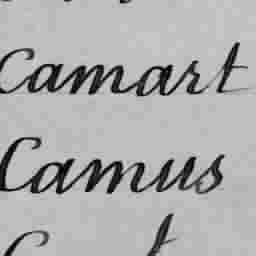 Camart
Camus